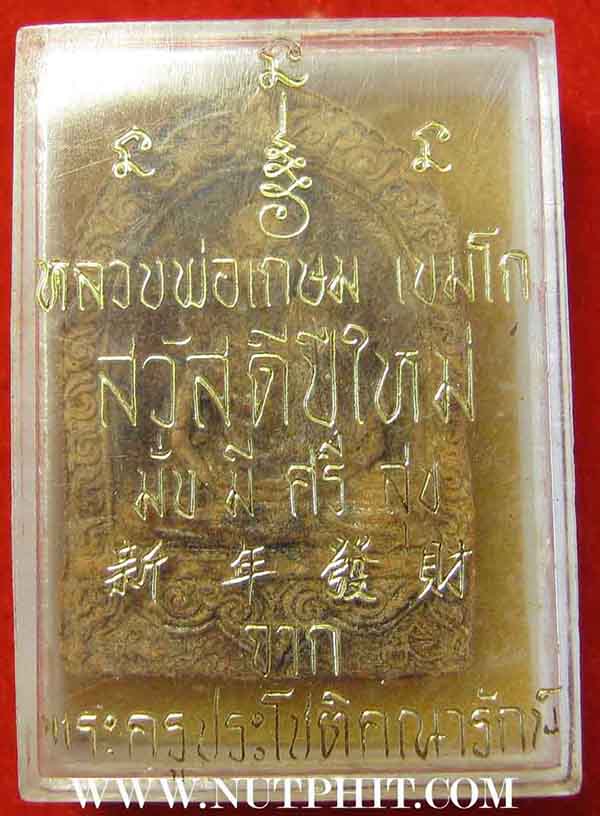 หลวงพ่อเกษม เขมโก
สวัสดีปีใหม่
มั่ง มี ศรี สุข
新年發財
จาก
พระครูประโชติคณารักษ์
WWW.NUTPHIT.COM